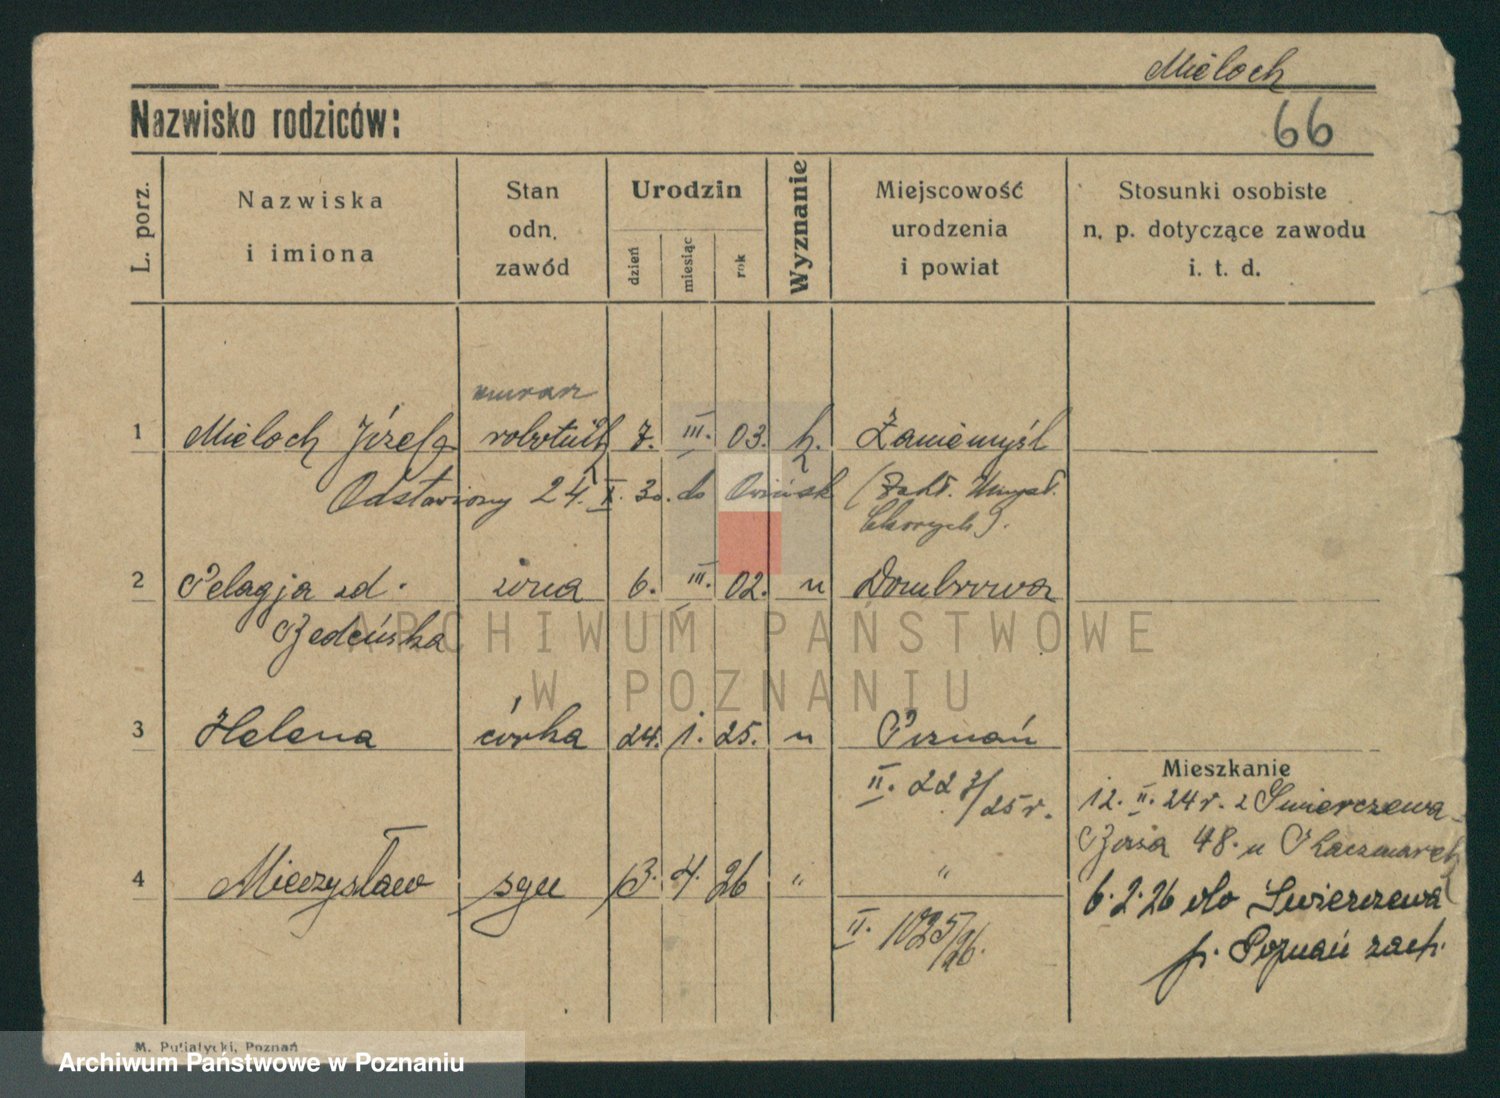 Mieloch
Nazwisko rodziców:
66
L. porz.
Nazwiska
i imiona
Stan
odn.
zawód
Urodzin
dzień
miesiąc
rok
Wyznanie
Miejscowość
urodzenia
i powiat
Stosunki osobiste
n. p. dotyczące zawodu
i. t. d.
murarz
1 Mieloch Józef robotnik 7. III. 03. k. Zaniemyśl
Odstawiony 24. X. 30. do Owińsk (Zakł. Umysł.
Chorych).
2 Pelagja zd. żona 6. III. 02. u Dombrowa
3 Helena córka 24. 1. 25. u Poznań
II. 223/25 r.
Mieszkanie
12. II. 24 r. z Świerczewa
48. u Kaczmarek
4 Mieczysław syn 13. 4. 26 " "
6.2.26 do Świerczewa
II. 1025/26.
p. Poznań zach.
M. Putiatycki, Poznań
ARCHIWUM PAŃSTWOWE
W POZNANIU
Archiwum Państwowe w Poznaniu